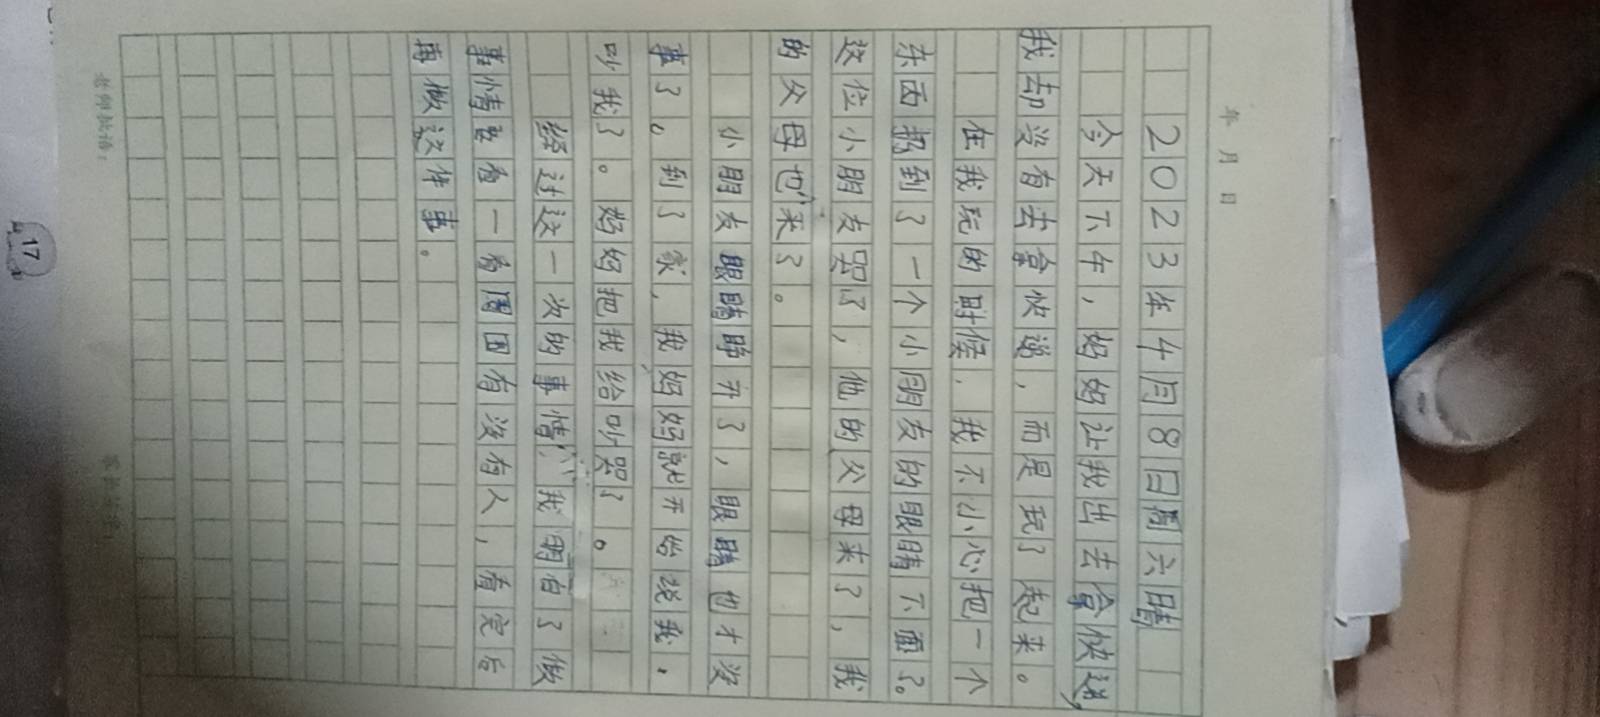 年 月 日
2023年4月8日周六晴
今天下午，妈妈让我出去拿快递，
我却没有去拿快递，而是玩了起来。
在我玩的时候，我不小心把一个
东西扔到了一个小朋友的眼睛下面了。
这位小朋友哭了，他的父母来了，我
的父母也来了。
小朋友眼睛睁开了，眼睛也才没
事了。到了家，我妈妈就开始说我，
吵我了。妈妈把我给吵哭了。
经过这一次的事情，我明白了做
事情要看一看周围有没有人，看完后
再做这件事。
老师批语：
17